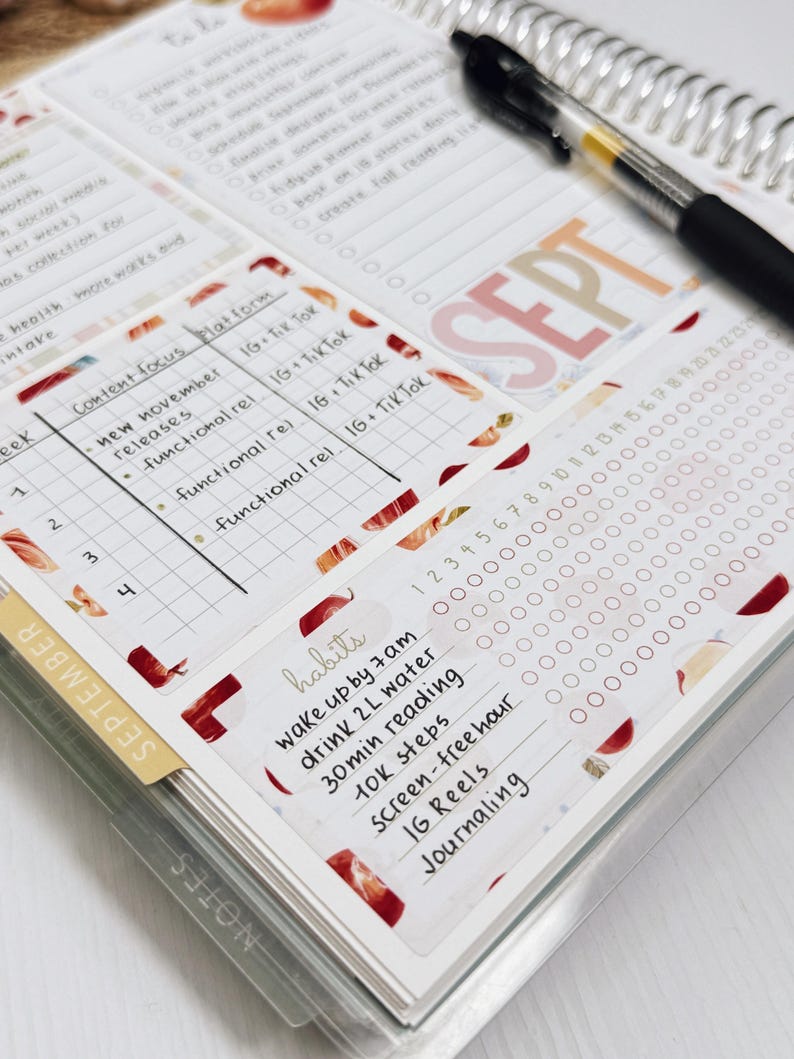 to do
schedule September promotions
finalize designs for December
order samples for next release
fridge planner supplies
create fall reading list
month
social media
per week
collection for
health: more walks and
intake
SEPT
Week
Content focus
Platform
1
new november
releases
IG + TikTok
2
functional rel.
IG + TikTok
3
functional rel.
IG + TikTok
4
functional rel.
IG + TikTok
habits
1 2 3 4 5 6 7 8 9 10 11 12 13 14 15 16 17 18 19 20 21 22 23
wake up by 7am
drink 2L water
30min reading
10K steps
screen-free hour
IG Reels
Journaling
SEPTEMBER
NOTES